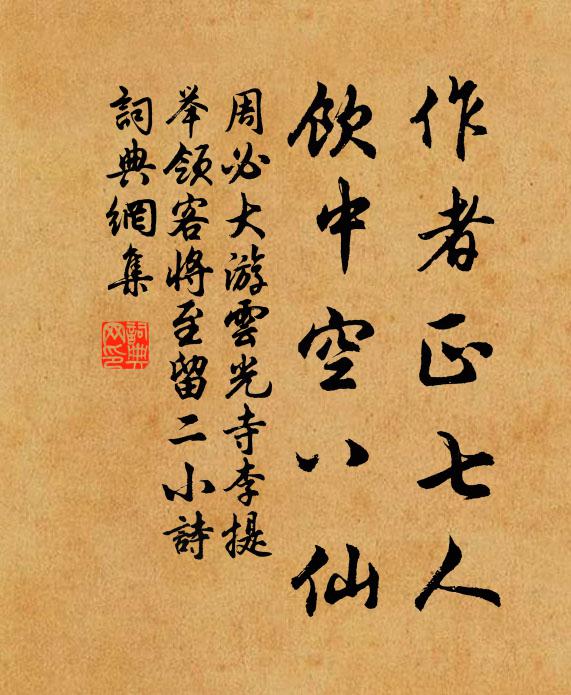 作者正七人
飲中空八仙
周必大游雲光寺李提
举領客將至留二小詩
詞典網集
詞典网印